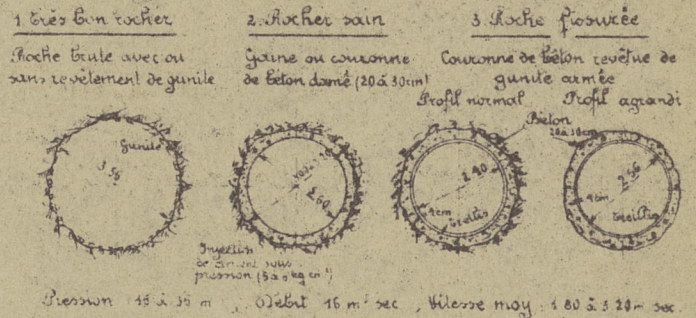 1. Très bon rocher
Roche brute avec ou
sans revêtement de gunite
Gunite
2. Rocher sain
Gaine ou couronne
de béton damé (20 à 30cm)
2.60
Injection
de ciment sous
pression
3. Roche fissurée
Couronne de béton revêtue de
gunite armée
Profil normal
Profil agrandi
Béton
20 à 30cm
2.40
4cm
treillis
2.56
4cm
treillis
Pression 15 à 35 m, Débit 16 m³ sec, Vitesse moy